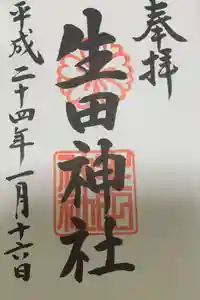 奉拝
生田神社
平成二十四年一月十六日